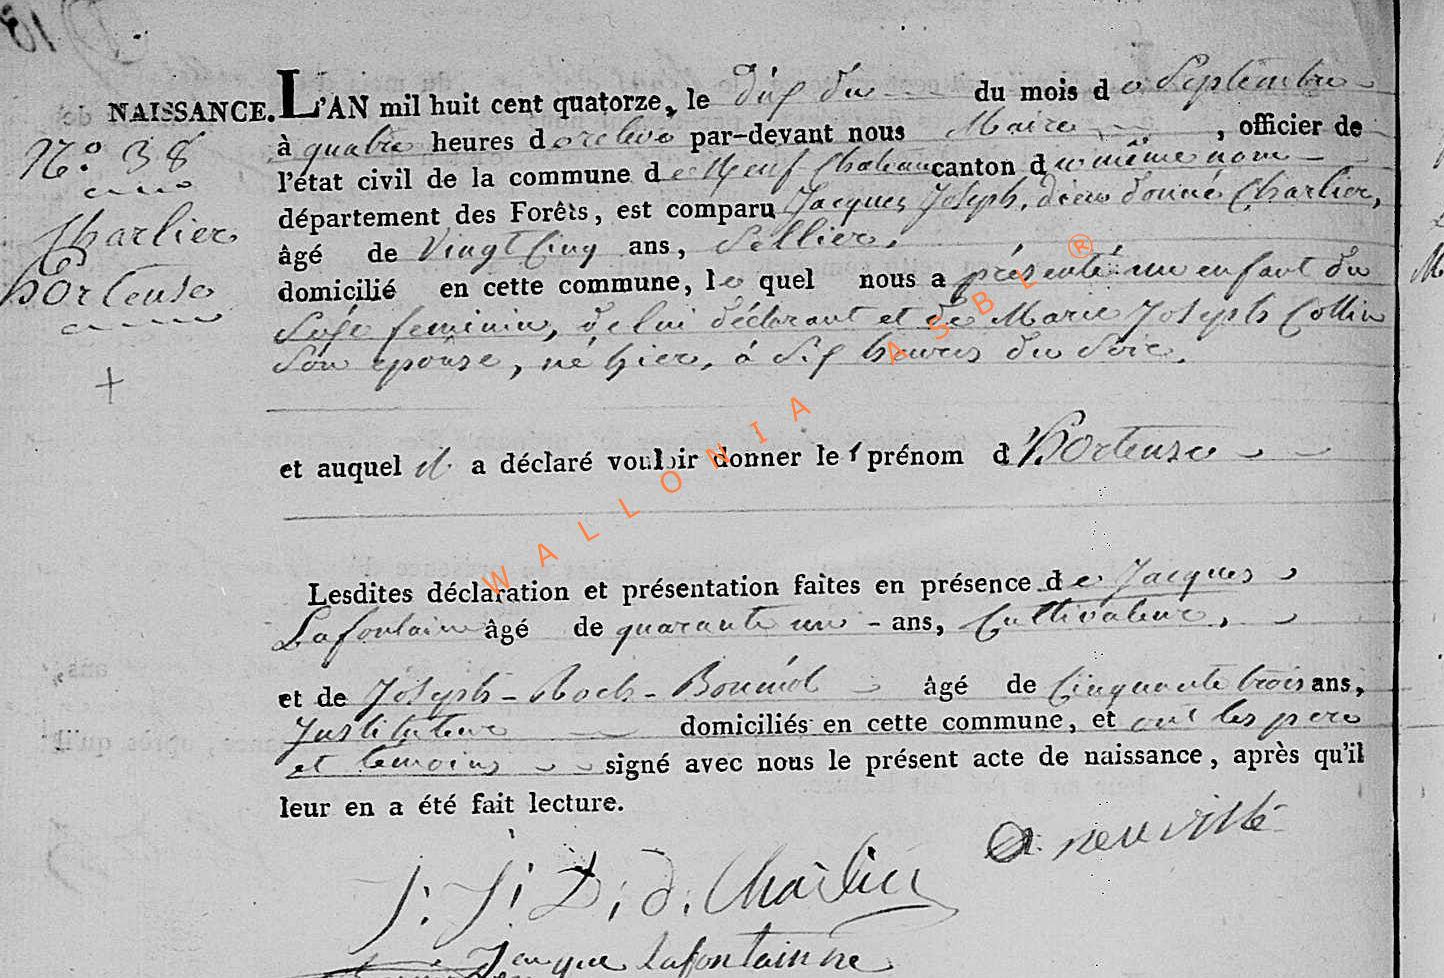 NAISSANCE. L'AN mil huit cent quatorze, le dix du mois de Septembre
à quatre heures de relevé par-devant nous Maire, officier de
N.º 38
l'état civil de la commune de Neufchateau canton du même nom
département des Forêts, est comparu Jacques Joseph, dieu donné Charlier,
Charlier
âgé de Vingt Cinq ans, Sellier,
Hortense
domicilié en cette commune, lequel nous a présenté un enfant du
Sexe feminin, de lui déclarant et de Marie Joseph Collin
Son epouse, né hier, à Six heures du Soir.
+
et auquel il a déclaré vouloir donner le prénom d'Hortense
Lesdites déclaration et présentation faites en présence de Jacques
Lafontaine âgé de quarante un ans, Cultivateur,
et de Joseph-Roch- âgé de Cinquante trois ans,
Instituteur domiciliés en cette commune, et ont les pere
et temoins signé avec nous le présent acte de naissance, après qu'il
leur en a été fait lecture.
neuville
J. J. D. d. Charlier
Jacque lafontainne
WALLONIA ASBL ®